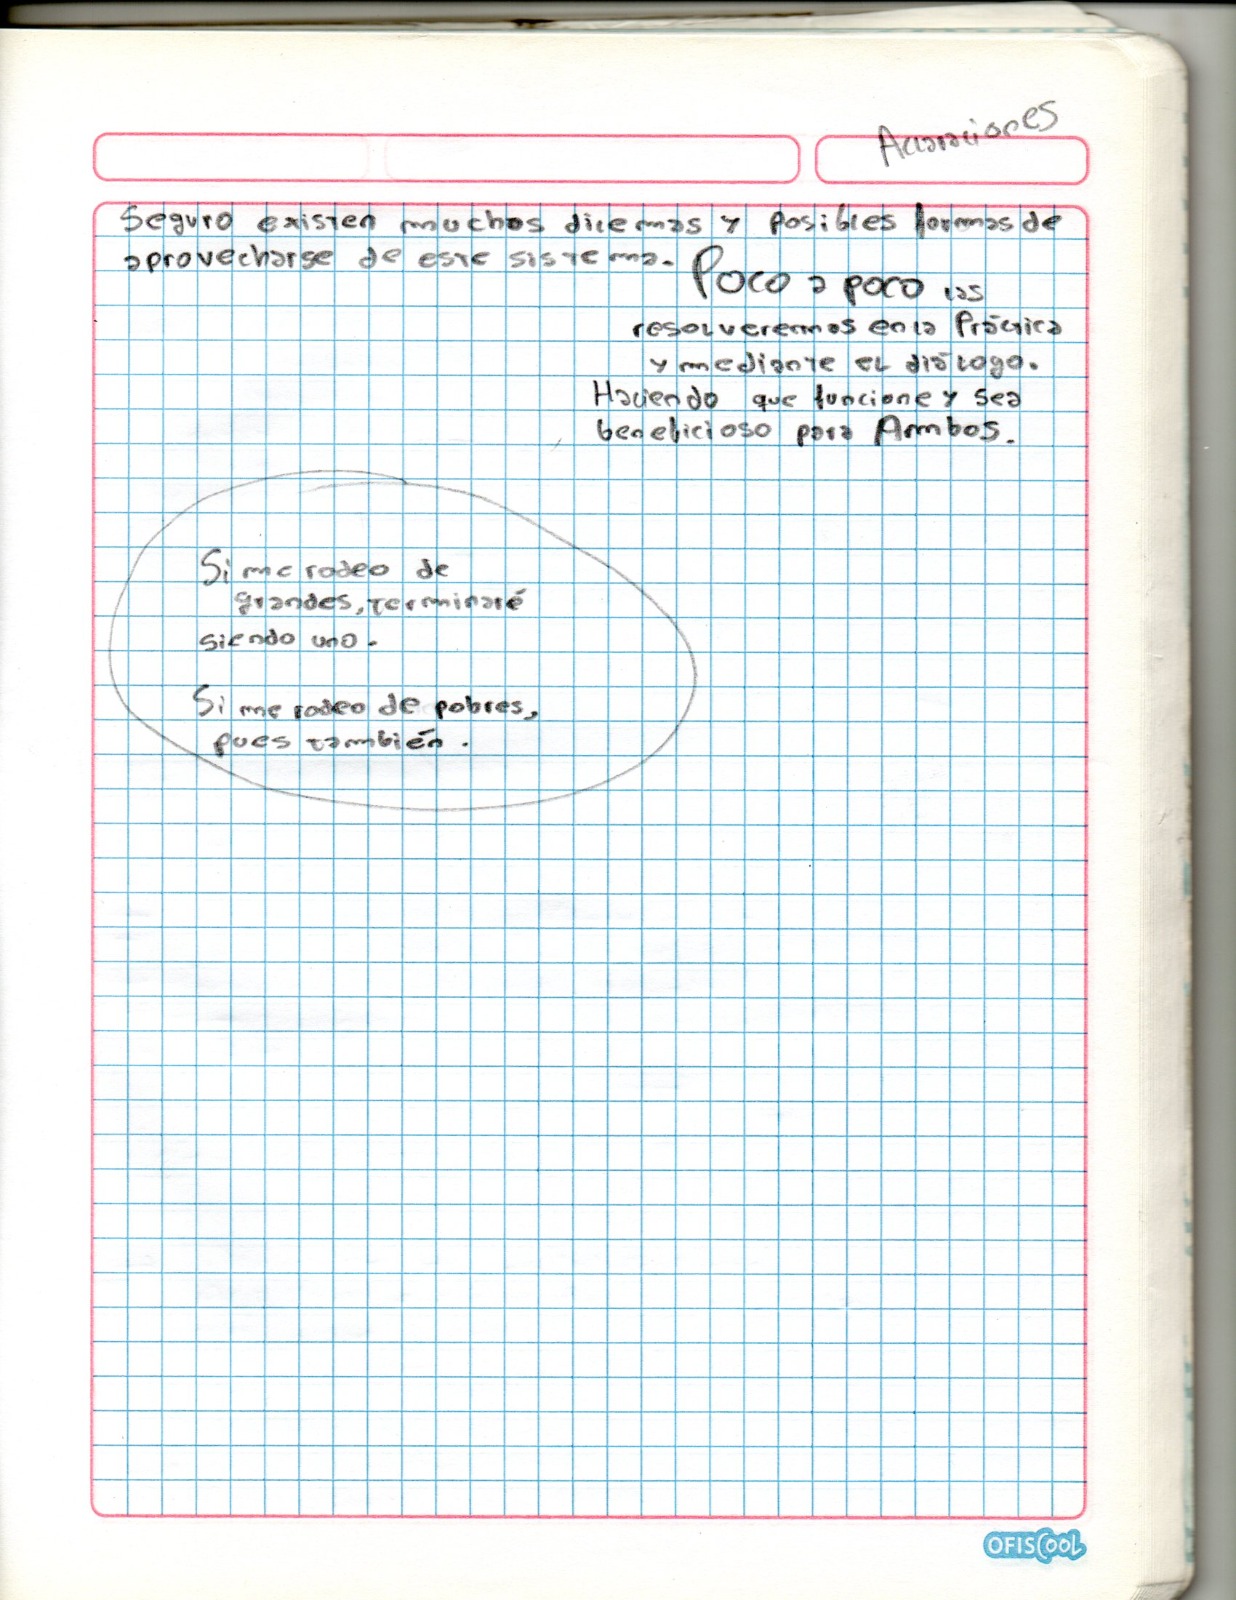 Aclaraciones
Seguro existen muchos dilemas y posibles formas de
aprovecharse de este sistema. Poco a poco las
resolveremos en la Práctica
y mediante el diálogo.
Haciendo que funcione y sea
beneficioso para Ambos.
Si me rodeo de
grandes, terminaré
siendo uno.
Si me rodeo de pobres,
pues también.
OFISCOOL